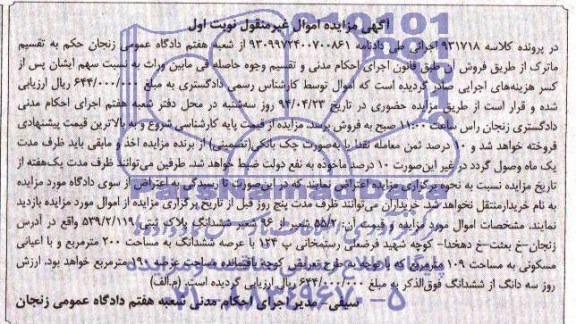 آگهی مزایده اموال غیرمنقول نوبت اول
در پرونده کلاسه 931718 اجرائی طی دادنامه 9309972400700861 از شعبه هفتم دادگاه عمومی زنجان حکم به تقسیم
ماترک از طریق فروش آن طبق قانون اجرای احکام مدنی و تقسیم وجوه حاصله فی مابین وراث به نسبت سهم ایشان پس از
کسر هزینه‌های اجرایی صادر گردیده است که اموال توسط کارشناس رسمی دادگستری به مبلغ 644/000/000 ریال ارزیابی
شده و قرار است از طریق مزایده حضوری در تاریخ 94/04/23 روز سه‌شنبه در محل دفتر شعبه هفتم اجرای احکام مدنی
دادگستری زنجان راس ساعت صبح به فروش برسد. مزایده از قیمت پایه کارشناسی شروع و به بالاترین قیمت پیشنهادی
فروخته خواهد شد و 10 درصد ثمن معامله نقدا یا به‌صورت چک بانکی(تضمینی) از برنده مزایده اخذ و مابقی باید ظرف مدت
یک ماه وصول گردد در غیر این‌صورت 10 درصد ماخوذه به نفع دولت ضبط خواهد شد. طرفین می‌توانند ظرف مدت یک‌هفته از
تاریخ مزایده نسبت به نحوه برگزاری مزایده اعتراض نمایند که در این‌صورت تا رسیدگی به اعتراض از سوی دادگاه مورد مزایده
به نام خریدار منتقل نخواهد شد. خریداران می‌توانند ظرف مدت پنج روز قبل از تاریخ برگزاری مزایده از اموال مورد مزایده بازدید
نمایند. مشخصات اموال مورد مزایده و قیمت آن: 55/2 شعیر از 96 شعیر ششدانگ پلاک ثبتی 539/2/119 واقع در آدرس
زنجان-خ بعثت-خ دهخدا- کوچه شهید فرضعلی رستمخانی پ 124 با عرصه ششدانگ به مساحت 200 مترمربع و با اعیانی
مسکونی به مساحت 109 مترمربع که با توجه به طرح تعریض کوچه باقیمانده مساحت عرصه 190 مترمربع خواهد بود. ارزش
روز سه دانگ از ششدانگ فوق‌الذکر به مبلغ 644/000/000 ریال ارزیابی گردیده است. (م.الف)
سیفی - مدیر اجرای احکام مدنی شعبه هفتم دادگاه عمومی زنجان